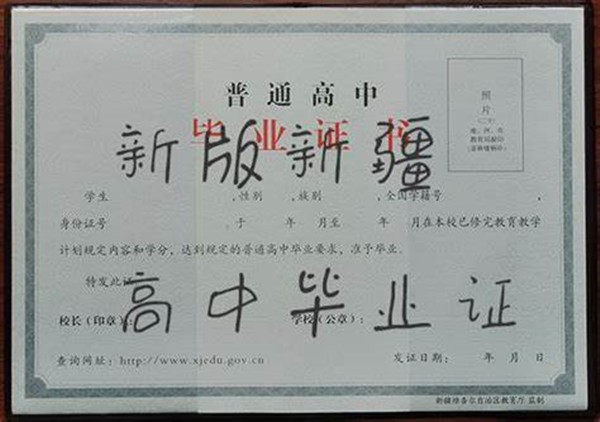 普通高中
毕业证书
照
片
(二寸)
新版新疆
学生 ,性别 ,族别 ,全国学籍号
身份证号 ,于 年 月至 年 月在本校已修完教育教学
计划规定内容和学分,达到规定的普通高中毕业要求,准予毕业。
特发此证
高中毕业证
校长(印章): 学校(公章):
查询网址:http://www.xjedu.gov.cn 发证日期: 年 月 日
新疆维吾尔自治区教育厅 监制